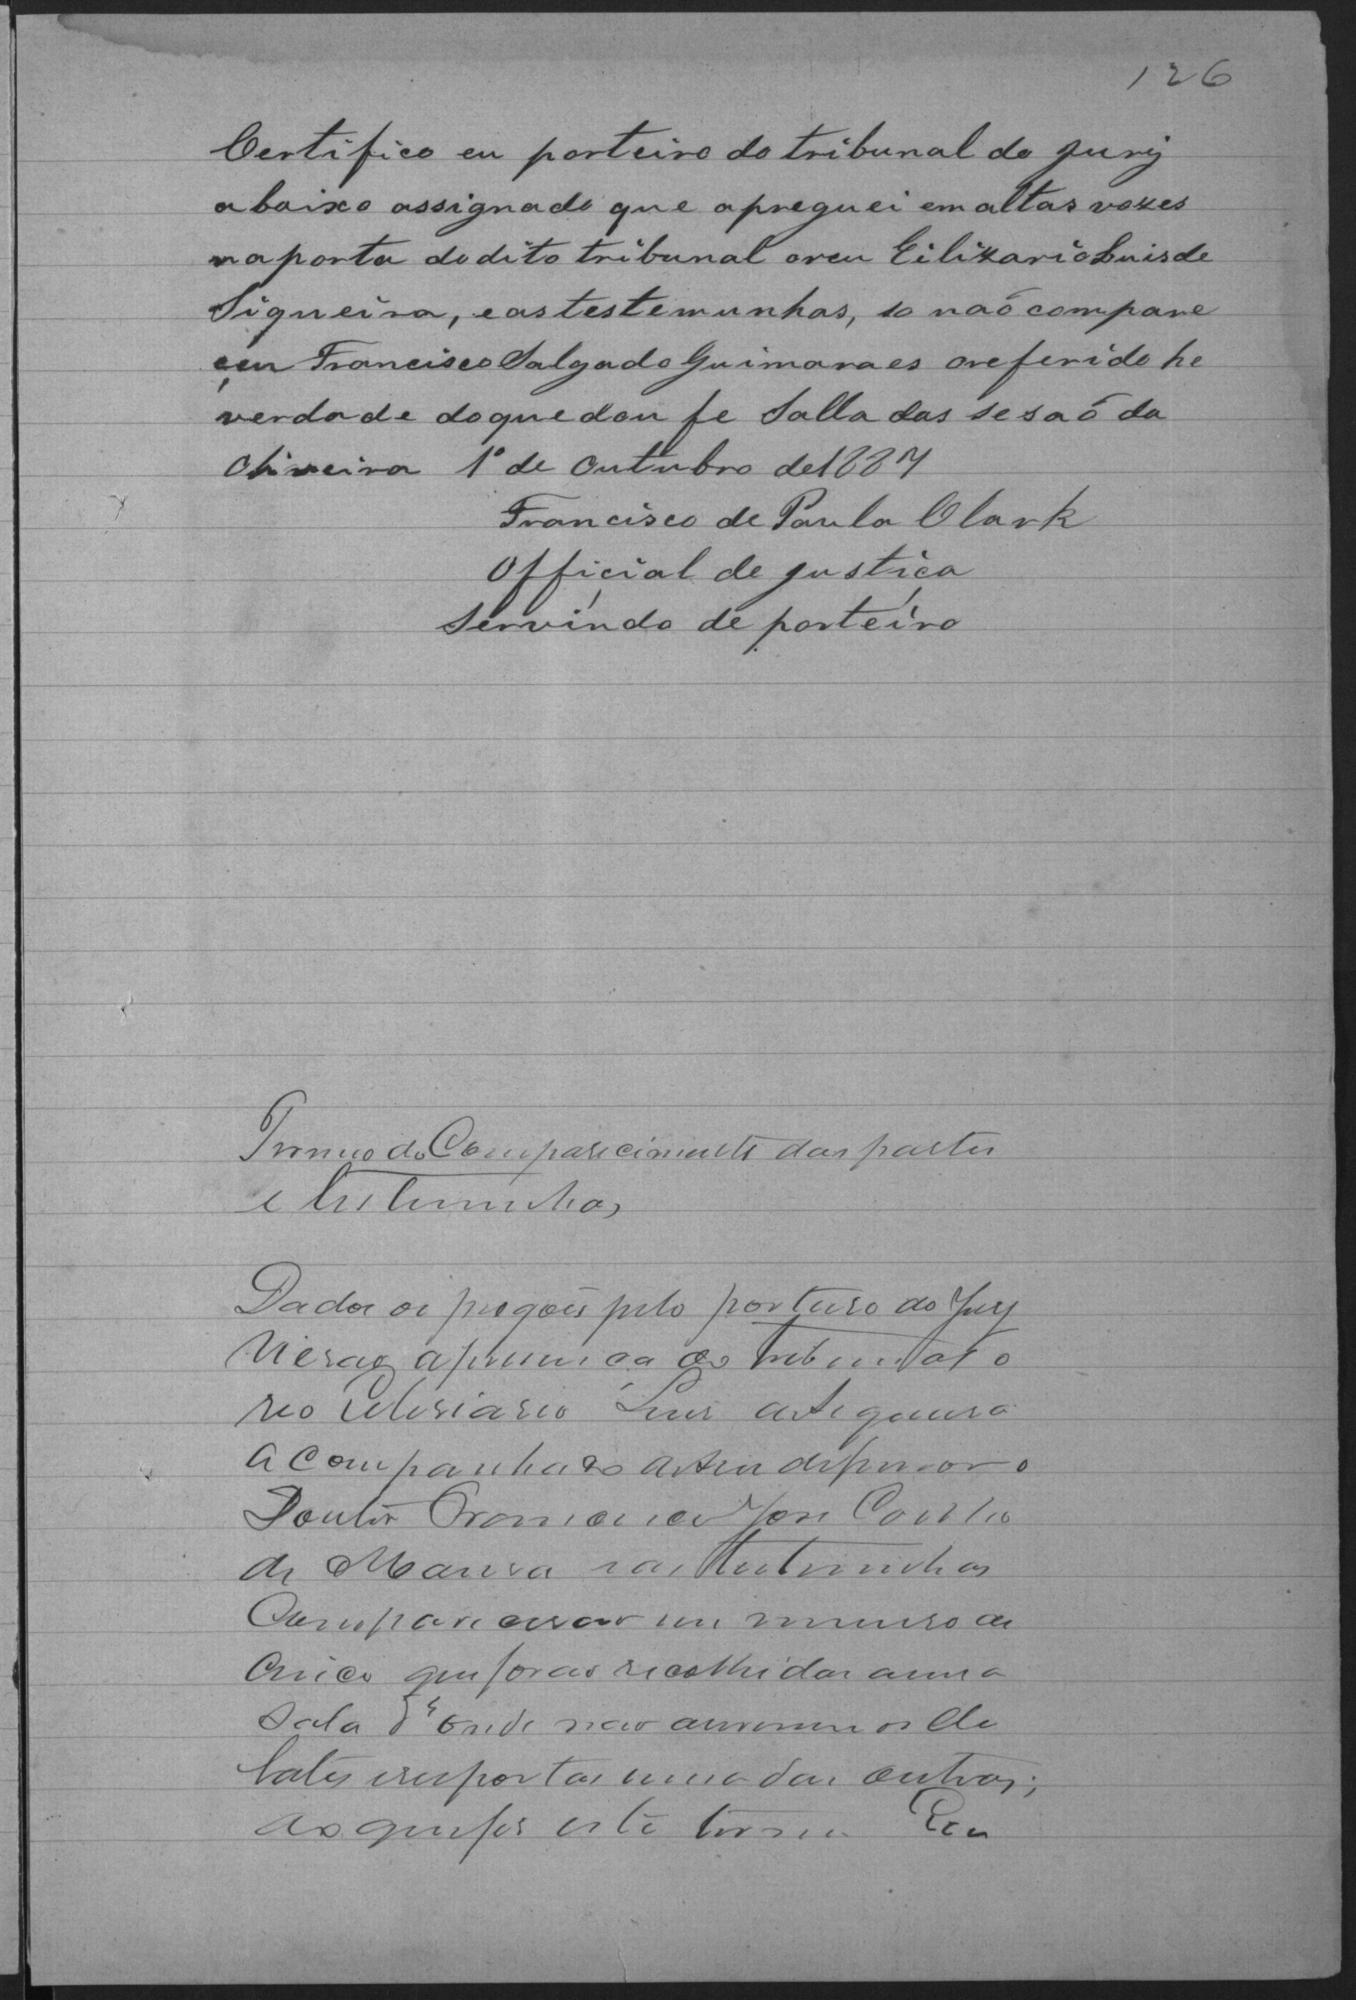 126
Certifico eu porteiro do tribunal do jury
abaixo assignado que apreguei em altas vozes
na porta do dito tribunal o reu Eilizario Luis de
Siqueira, e as testemunhas, so naõ compare
ceu Francisco Salgado Guimaraes o referido he
verdade do que dou fe Salla das sesaõ da
1º de Outubro de 1887
Francisco de Paula Clark
Official de justiça
Servindo de porteiro
Termo de Comparecimento das partes
e testemunhas
Dados os pregões pelo porteiro do Jury
a presença do tribunal o
reo Luis de Siqueira
acompanhado de seu defensor o
Doutor José Coelho
de Moura e as testemunhas
Comparecerão em numero de
cinco que forão recolhidas a uma
sala d'onde não ouvissem os de
bates e respostas umas das outras;
do que fiz este termo Eu